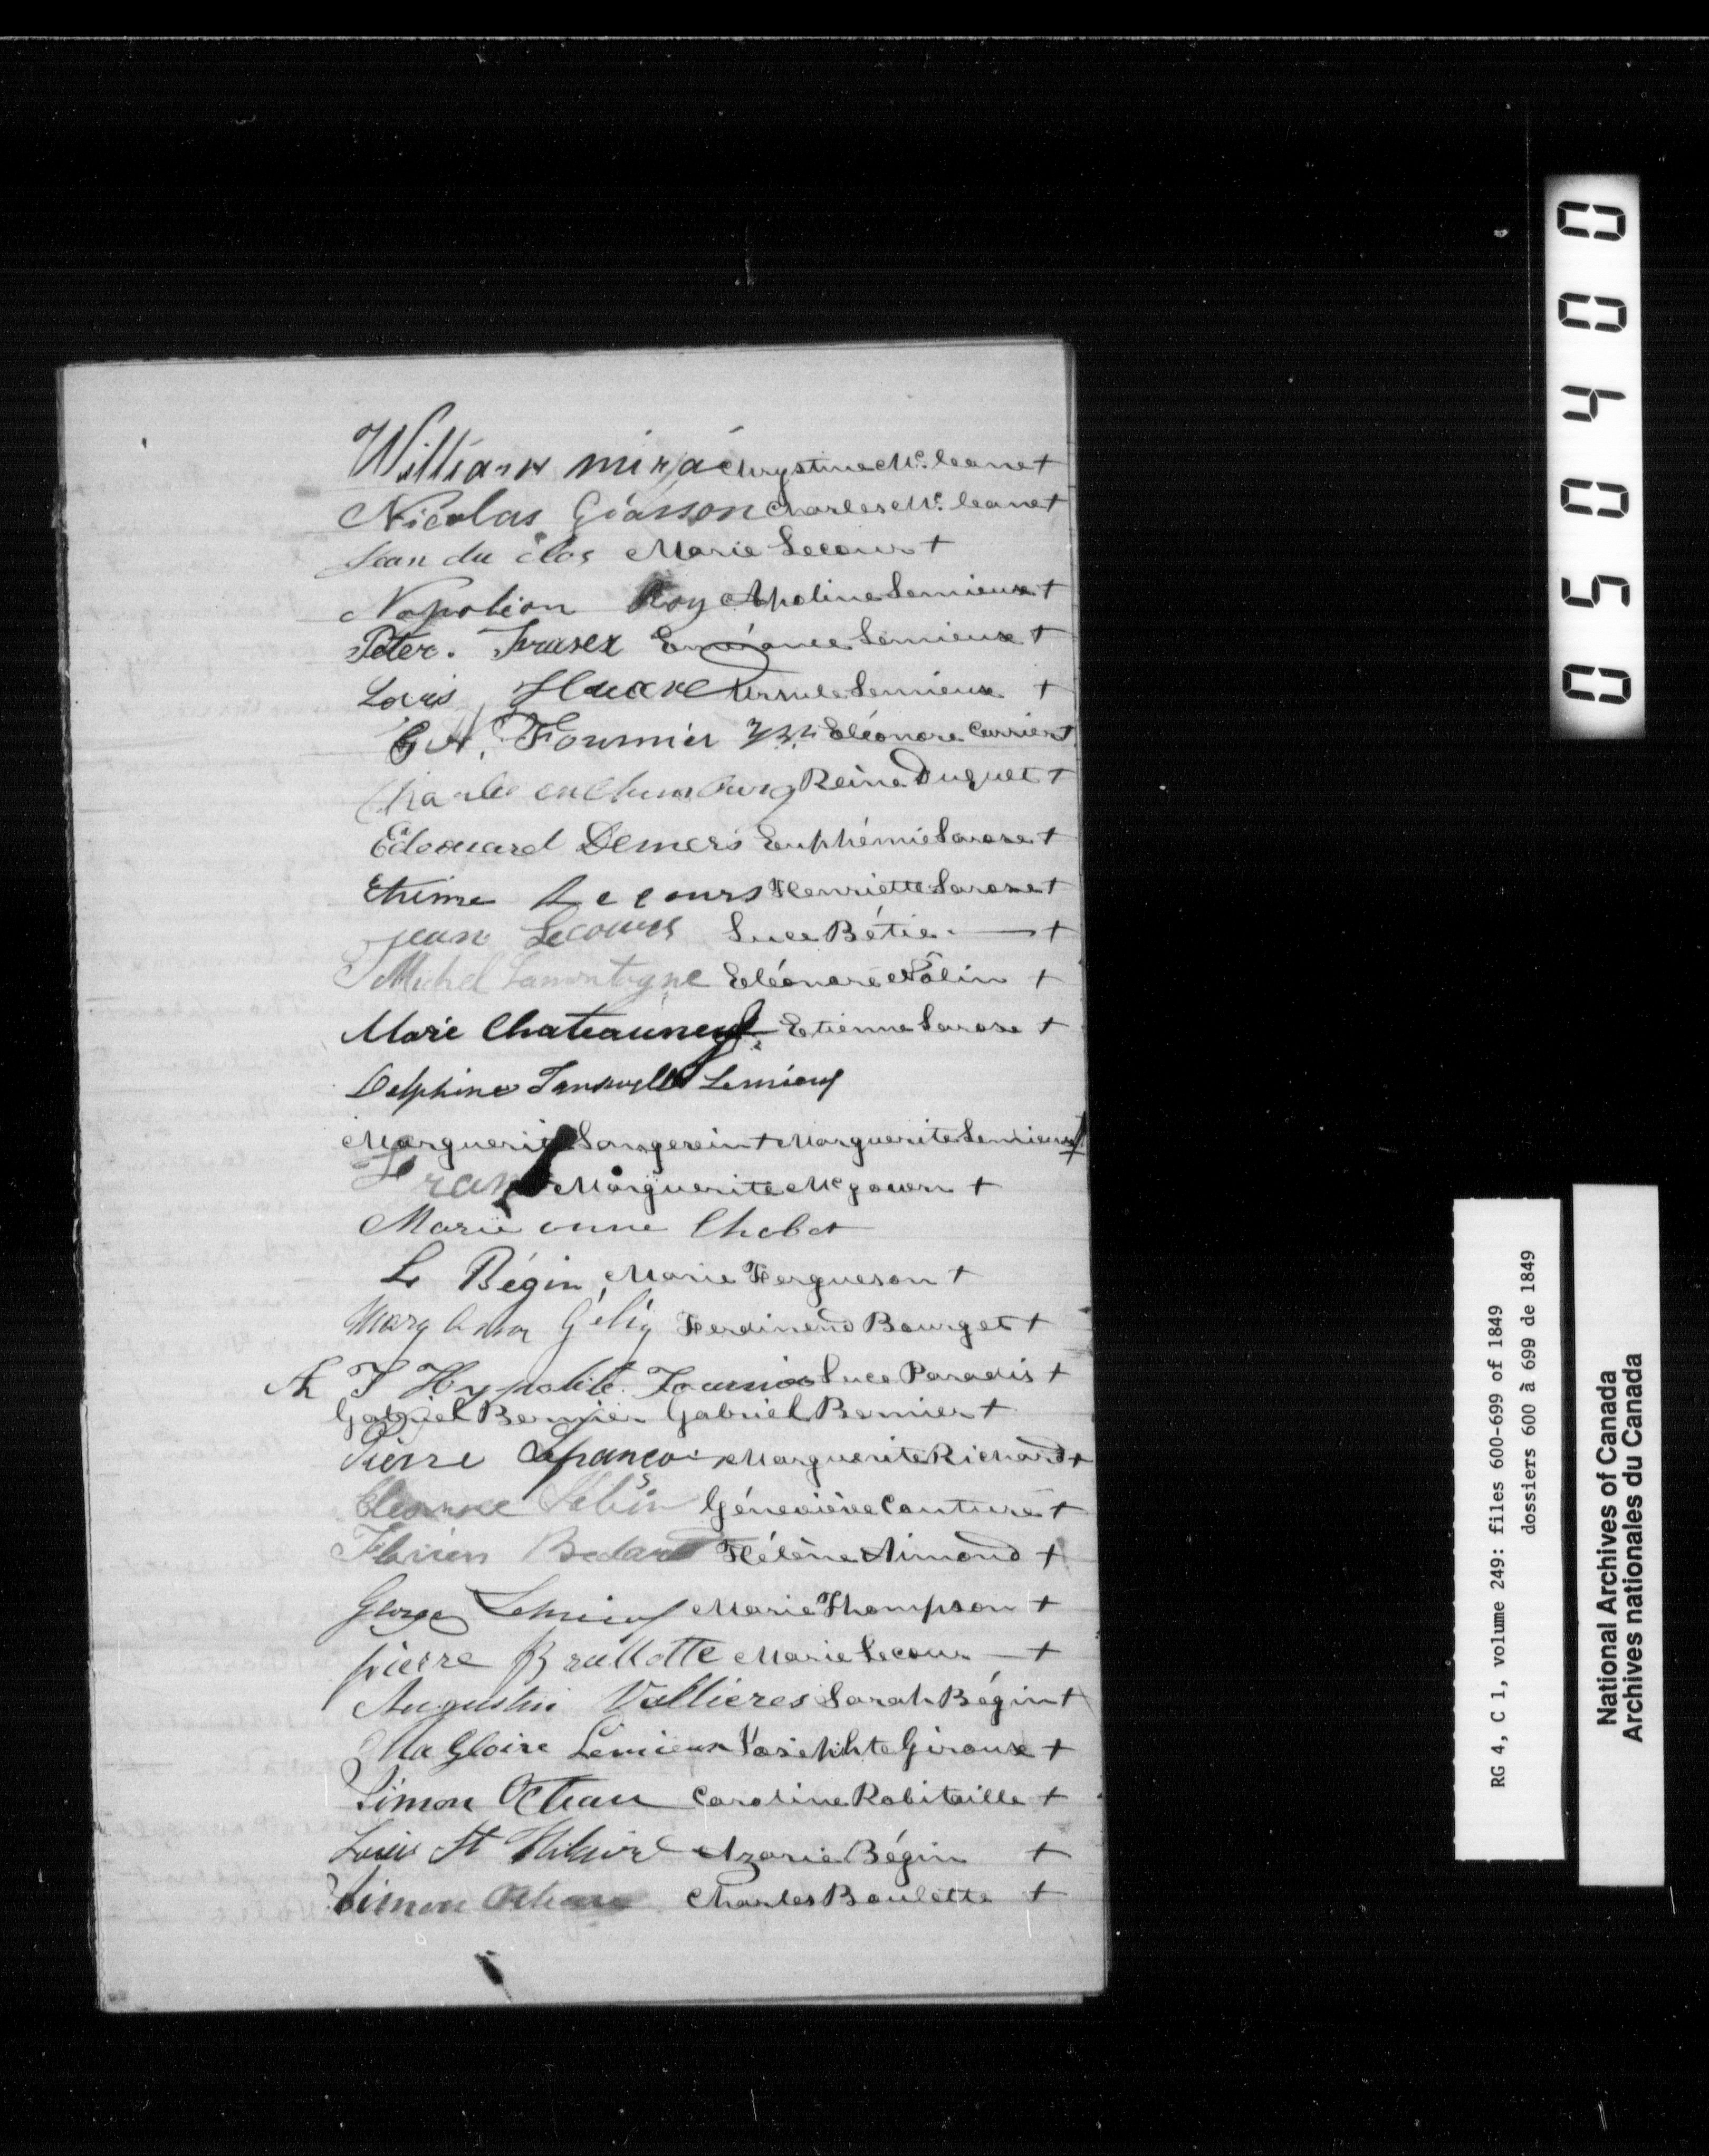 William mirja Chrystine Mc. leane +
Nicolas Giasson Charles Mc. leane +
Jean du clos Marie Lecours +
Napoleon Roy Apoline Lemieux +
Peter. Fraser Emérance Lemieux +
Louis Huare Ursule Lemieux +
G H. Fournier Eléonore Carrier +
Charles Reine Duguet +
Edouard Demers Euphémie Larose +
Etiene Lecours Henriette Larose +
jean Lecours Luce Bétie. — +
Michel Lamontagne Eléonore Nolin +
Marie Chateauneuf Etienne Larose +
Delphine Tanswell Lemieux
Marguerite + Marguerite Lemieux +
Frank Marguerite Mc gowen +
Marie anne Chabot
L Bégin Marie Fergueson +
Mary Ann Gély Ferdinend Bourget +
J Hypolite Fournier Luce Paradis +
Gabriel Bernier Gabriel Bernier +
Pierre Lefrancois Marguerite Richard +
Eleonore Geneviève Couture +
Flavien Bedard Hélène Aimond +
George Lemieux Marie Thompson +
pierre Brullotte Marie Lecour — +
Augustin Vallieres Sarah Bégin +
MaGloire Lemieux Josephte Giroux +
Simon Octeau Caroline Robitaille +
Louis St Hilaire Azarie Bégin +
Simon Octeau Charles Boulette +
05040 0
RG 4, C 1, volume 249: files 600-699 of 1849
dossiers 600 à 699 de 1849
National Archives of Canada
Archives nationales du Canada